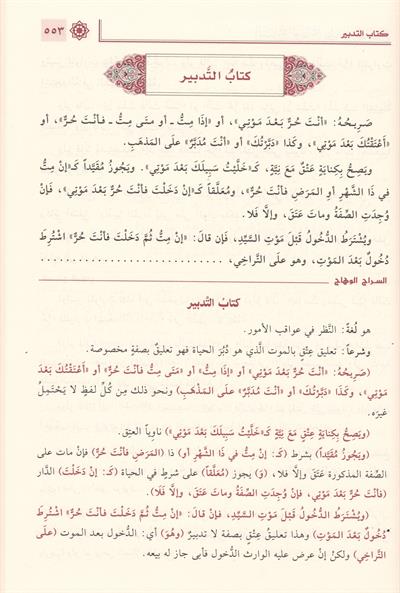 كتاب التدبير ٥٥٣
كتابُ التَّدبير
صَرِيحُهُ: «أَنْتَ حُرٌّ بَعْدَ مَوْتِي»، أو «إِذَا مِتُّ ـ أو متَى مِتُّ ـ فأَنْتَ حُرٌّ»، أو
«أَعْتَقْتُكَ بَعْدَ مَوْتِي»، وكذا «دَبَّرْتُكَ» أو «أنْتَ مُدَبَّرٌ» علَى المَذهَبِ.
ويَصِحُّ بِكِنايَةِ عَتْقٍ مَعَ نِيَّةٍ، كَـ«خَلَّيْتُ سَبِيلَكَ بَعْدَ مَوْتِي». ويَجُوزُ مُقَيَّداً كَـ«إنْ مِتُّ
في ذَا الشَّهْرِ أوِ المَرَضِ فأنْتَ حُرٌّ»، ومُعَلَّقاً كَـ«إنْ دَخَلْتَ فأنْتَ حُرٌّ بَعْدَ مَوْتِي»، فَإنْ
وُجِدَتِ الصِّفَةُ وماتَ عَتَقَ، وإلَّا فَلا.
ويُشْتَرَطُ الدُّخُولُ قَبْلَ مَوْتِ السَّيِّدِ، فَإن قالَ: «إنْ مِتُّ ثُمَّ دَخَلْتَ فأنْتَ حُرٌّ» اشْتُرِطَ
دُخُولٌ بَعْدَ المَوْتِ، وهو علَى التَّراخِي، ..........................
السراج الوهاج
كتابُ التَّدبير
هو لُغةً: النَّظر في عواقب الأمور.
وشرعاً: تعليق عِتْقٍ بالموت الَّذي هو دُبُرَ الحياة فهو تعليقٌ بصفةٍ مخصوصة.
(صَرِيحُهُ: «أنْتَ حُرٌّ بَعْدَ مَوْتِي» أو «إذَا مِتُّ» أو «مَتَى مِتُّ فأنْتَ حُرٌّ» أو «أعْتَقْتُكَ بَعْدَ
مَوْتِي»، وكَذَا «دَبَّرْتُكَ» أو «أنْتَ مُدَبَّرٌ» علَى المَذْهَبِ) ونحو ذلك مِن كُلِّ لفظٍ لا يَحْتَمِلُ
غيرَه.
(ويَصِحُّ بِكِنايَةِ عِتْقٍ مَعَ نِيَّةٍ كَـ«خَلَّيْتُ سَبِيلَكَ بَعْدَ مَوْتِي») ناوياً العتِق.
(ويَجُوزُ مُقَيَّداً) بشرطٍ (كَـ: إنْ مِتُّ في ذَا الشَّهْرِ أو) ذا (المَرَضِ فأنْتَ حُرٌّ) فإن مات على
الصِّفة المذكورة عَتَقَ وإلَّا فلا، (وَ) يجوز (مُعَلَّقاً) على شرطٍ في الحياة (كَـ: إنْ دَخَلْتَ) الدَّار
(فأنْتَ حُرٌّ بَعْدَ مَوْتِي، فإنْ وُجِدَتِ الصِّفَةُ وماتَ عَتَقَ، وإلَّا فَلا).
(ويُشْتَرَطُ الدُّخُولُ قَبْلَ مَوْتِ السَّيِّدِ، فَإن قالَ: «إنْ مِتُّ ثُمَّ دَخَلْتَ فأنْتَ حُرٌّ» اشْتُرِطَ
دُخُولٌ بَعْدَ المَوْتِ) وهذا تعليقُ عِتقٍ بصفة لا تدبيرٌ (وهُوَ) أي: الدُّخول بعد الموت (علَى
التَّراخِي) ولكنْ إنْ عرض عليه الوارث الدُّخول فأبى جاز له بيعه.